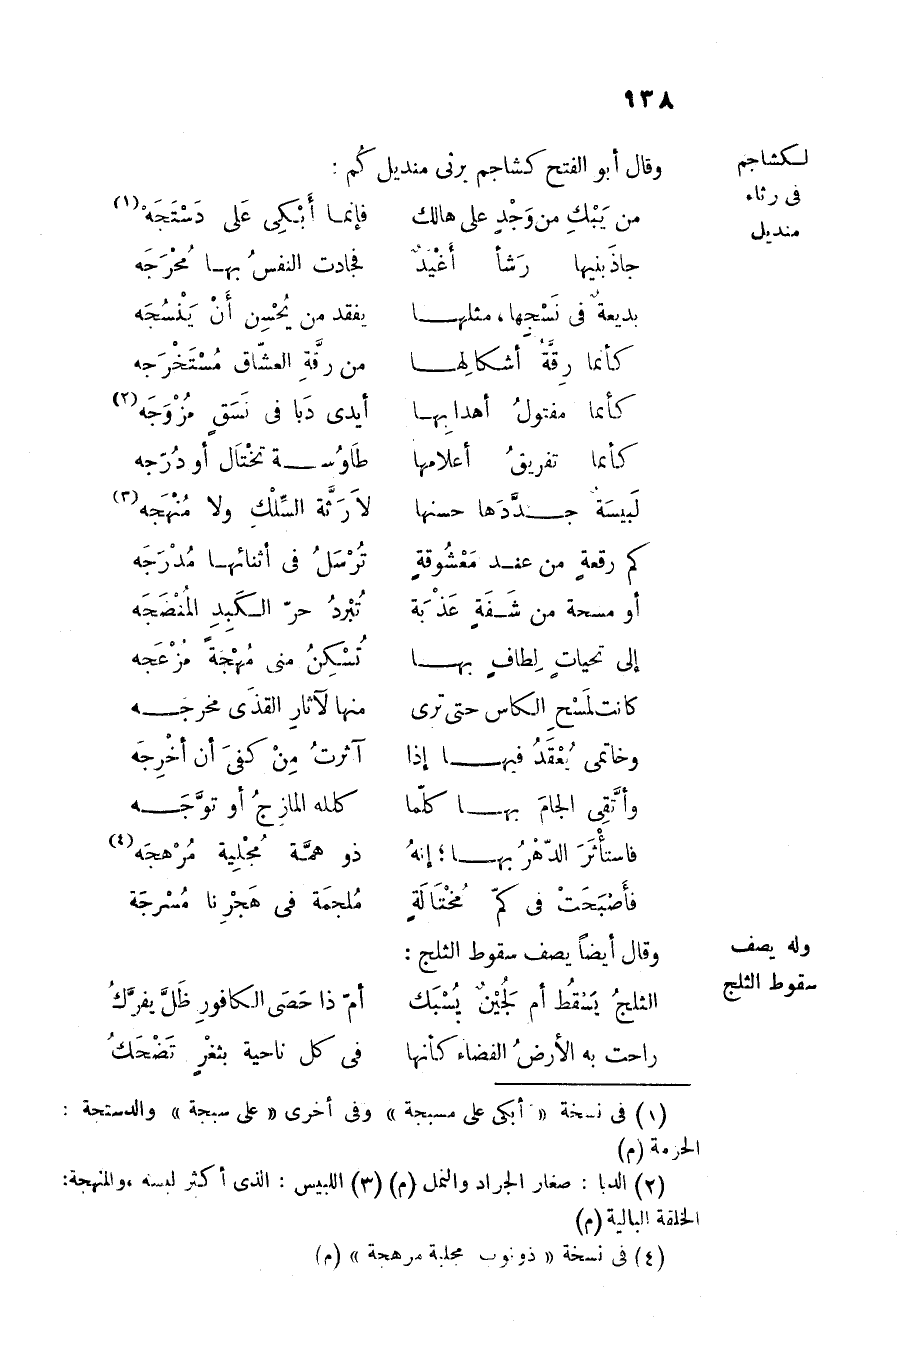 ٩٣٨
لكشاجم
فى رثاء
منديل
وقال أبو الفتح كشاجم يرثى منديل كُم :
من يَبْكِ من وَجْدٍ على هالك فإنما أَبْكِى عَلَى دَسْتَجَهْ (١)
جاذَبنيها رَشأ أَغْيَدٌ فجادت النفسُ بها مُحْرَجَه
بديعةٌ فى نَسْجِها، مثلها يفقد من يُحْسِن أَنْ يَنْسُجَه
كأنما رِقَّةُ أشكالِها من رقَّةِ العشّاق مُسْتَخْرَجه
كأنما مفتولُ أهدابِها أيدى دَبا فى نَسَقٍ مُزْوَجَه (٢)
كأنما تفريقُ أعلامها طَاوُسة تَخْتَال أو دُرّجه
لَبِيسَةٌ جدَّدَها حسنها لاَ رَثَّة السِّلْكِ ولا مُنْهَجه (٣)
كم رقعةٍ من عند مَعْشُوقةٍ تُرْسَلُ فى أثنائها مُدْرَجَه
أو مسحة من شَفَةٍ عَذْبَة تُبْرِدُ حرّ الكَبِدِ المُنْضَجَه
إلى تحياتٍ لِطافٍ بها تُسْكِنُ منى مُهْجَةً مُزْعَجه
كانت لَمَسْحِ الكاس حتى ترى منها لآثارِ القذَى مخرجه
وخاتمى يُعْقَدُ فيها إذا آثرتُ مِنْ كفىَ أن أُخْرِجَه
وأتَّقِى الجامَ بها كلّما كلله المازجُ أو توَّجَه
فاستأْثَرَ الدّهْرُ بها؛ إنهُ ذو همّة مُجْلِية مُرْهجَه (٤)
فأَصْبَحَتْ فى كمّ مُخْتَالَةٍ مُلجمَة فى هَجْرِنا مُسْرجَة
وله يصف
سقوط الثلج
وقال أيضاً يصف سقوط الثلج :
الثلجُ يَسْقُطُ أم لُجَيْنٌ يُسْبَك أمْ ذا حَصَى الكافورِ ظَلَّ يفرَّكُ
راحت به الأرضُ الفضاء كأنها فى كل ناحية بثغْرٍ تَضْحَكُ
(١) فى نسخة « أبكى على مسبحة » وفى أخرى « على سبحة » والدستجة :
الحزمة (م)
(٢) الدبا : صغار الجراد والنمل (م) (٣) اللبيس : الذى أكثر لبسه ، والمنهجة :
الخلقة البالية (م)
(٤) فى نسخة « ذو نوب مجلبة مرهجة » (م)